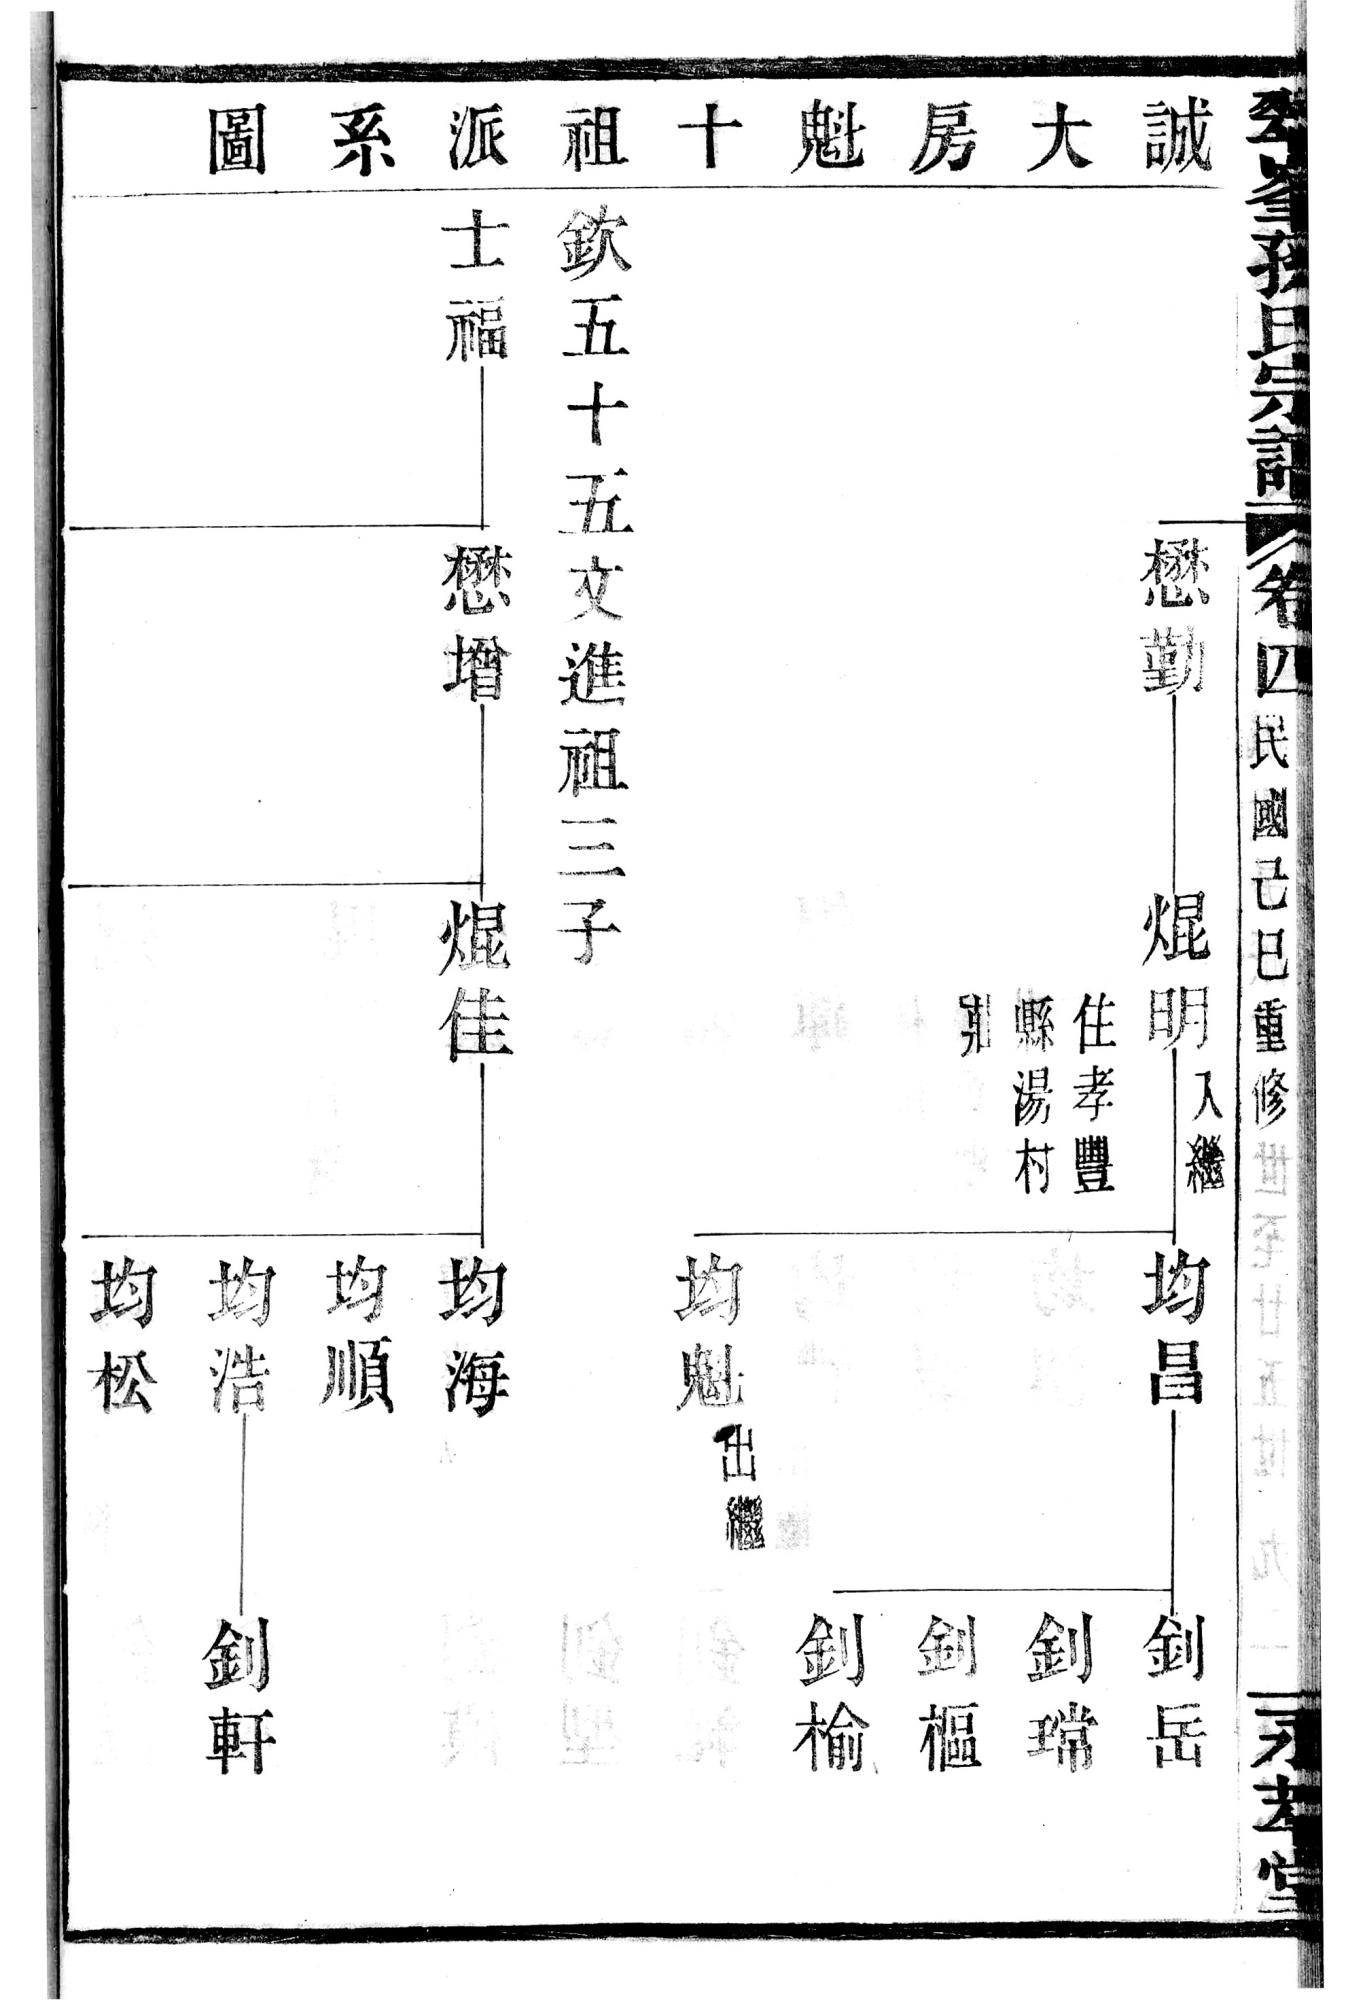 孫氏宗譜
卷四
民國己巳重修
誠大房魁十祖派系圖
懋勤
焜明
入繼
住孝豐
縣湯村
均昌
均魁
出繼
釗岳
釗璫
釗樞
釗榆
欽五十五文進祖三子
士福
懋增
焜佳
均海
均順
均浩
均松
釗軒